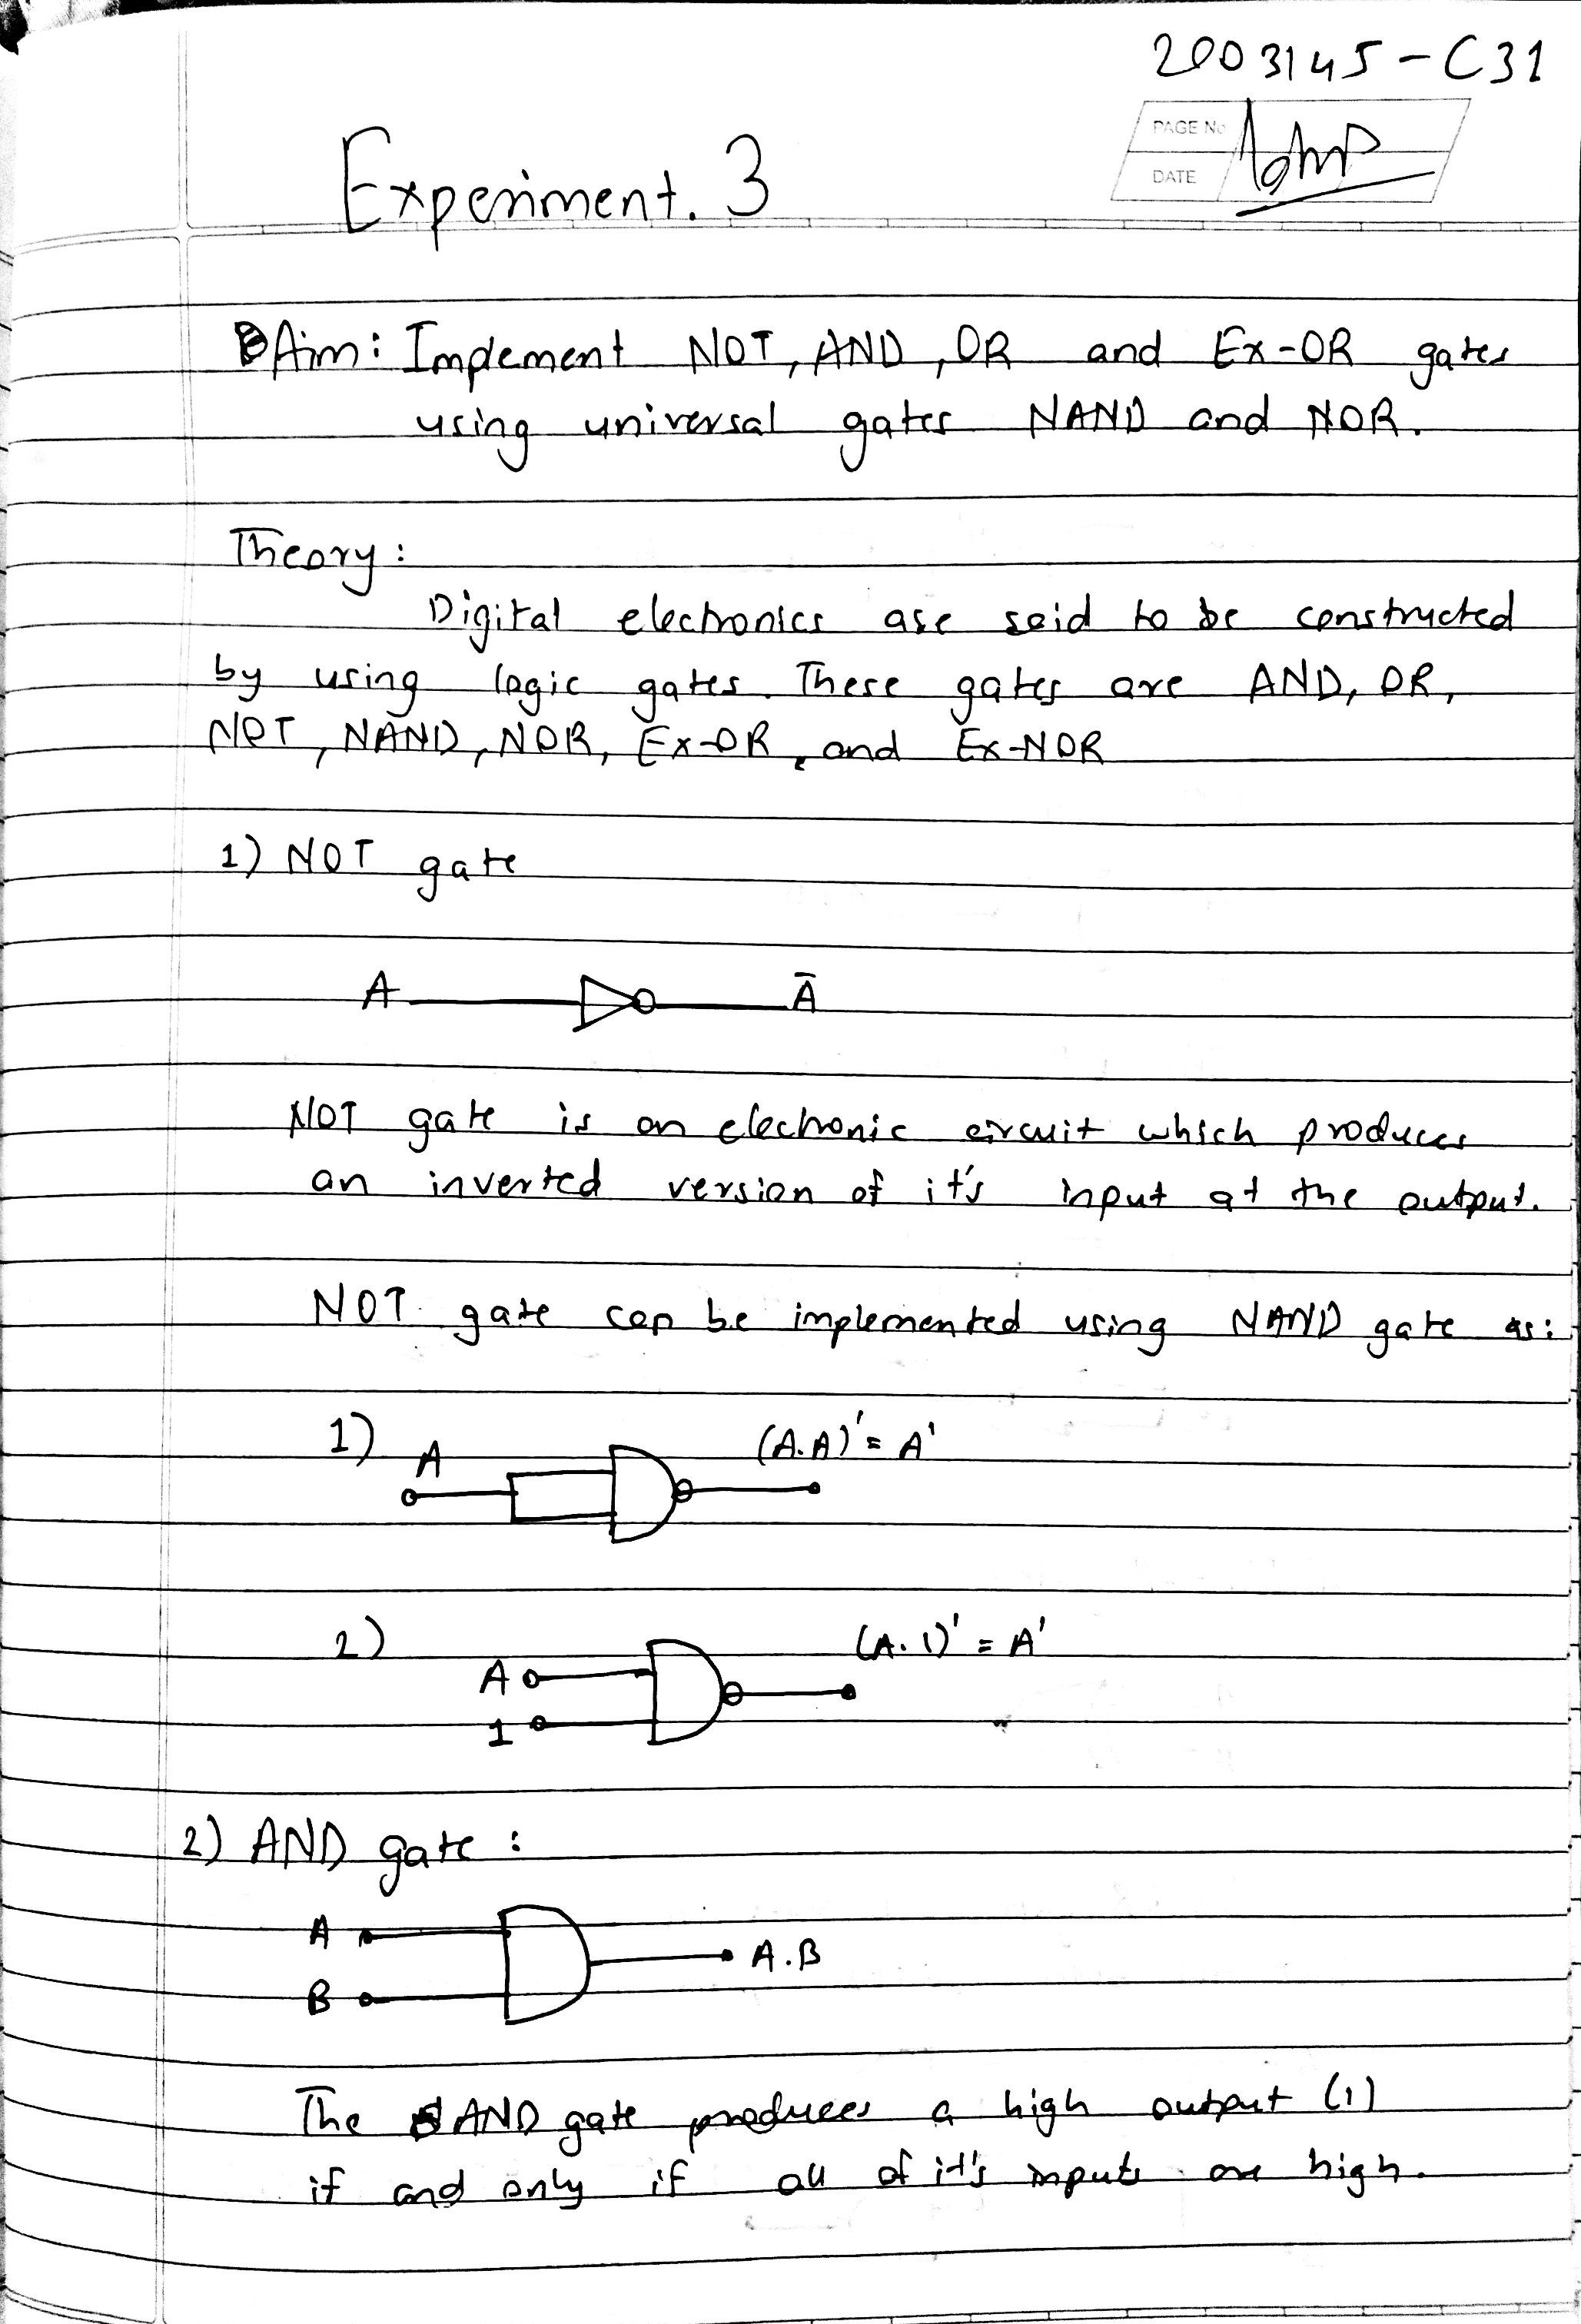 2003145-C31
PAGE No
DATE
Experiment. 3
Aim: Implement NOT, AND, OR and Ex-OR gates
using universal gates NAND and NOR.
Theory:
Digital electronics are said to be constructed
by using logic gates. These gates are AND, OR,
NOT, NAND, NOR, Ex-OR, and Ex-NOR
1) NOT gate
A Ā
NOT gate is an electronic circuit which produces
an inverted version of it's input at the output.
NOT gate can be implemented using NAND gate as:
1) A (A.A)' = A'
2) (A.1)' = A'
A
1
2) AND gate:
A
A.B
B
The AND gate produces a high output (1)
if and only if all of it's inputs are high.